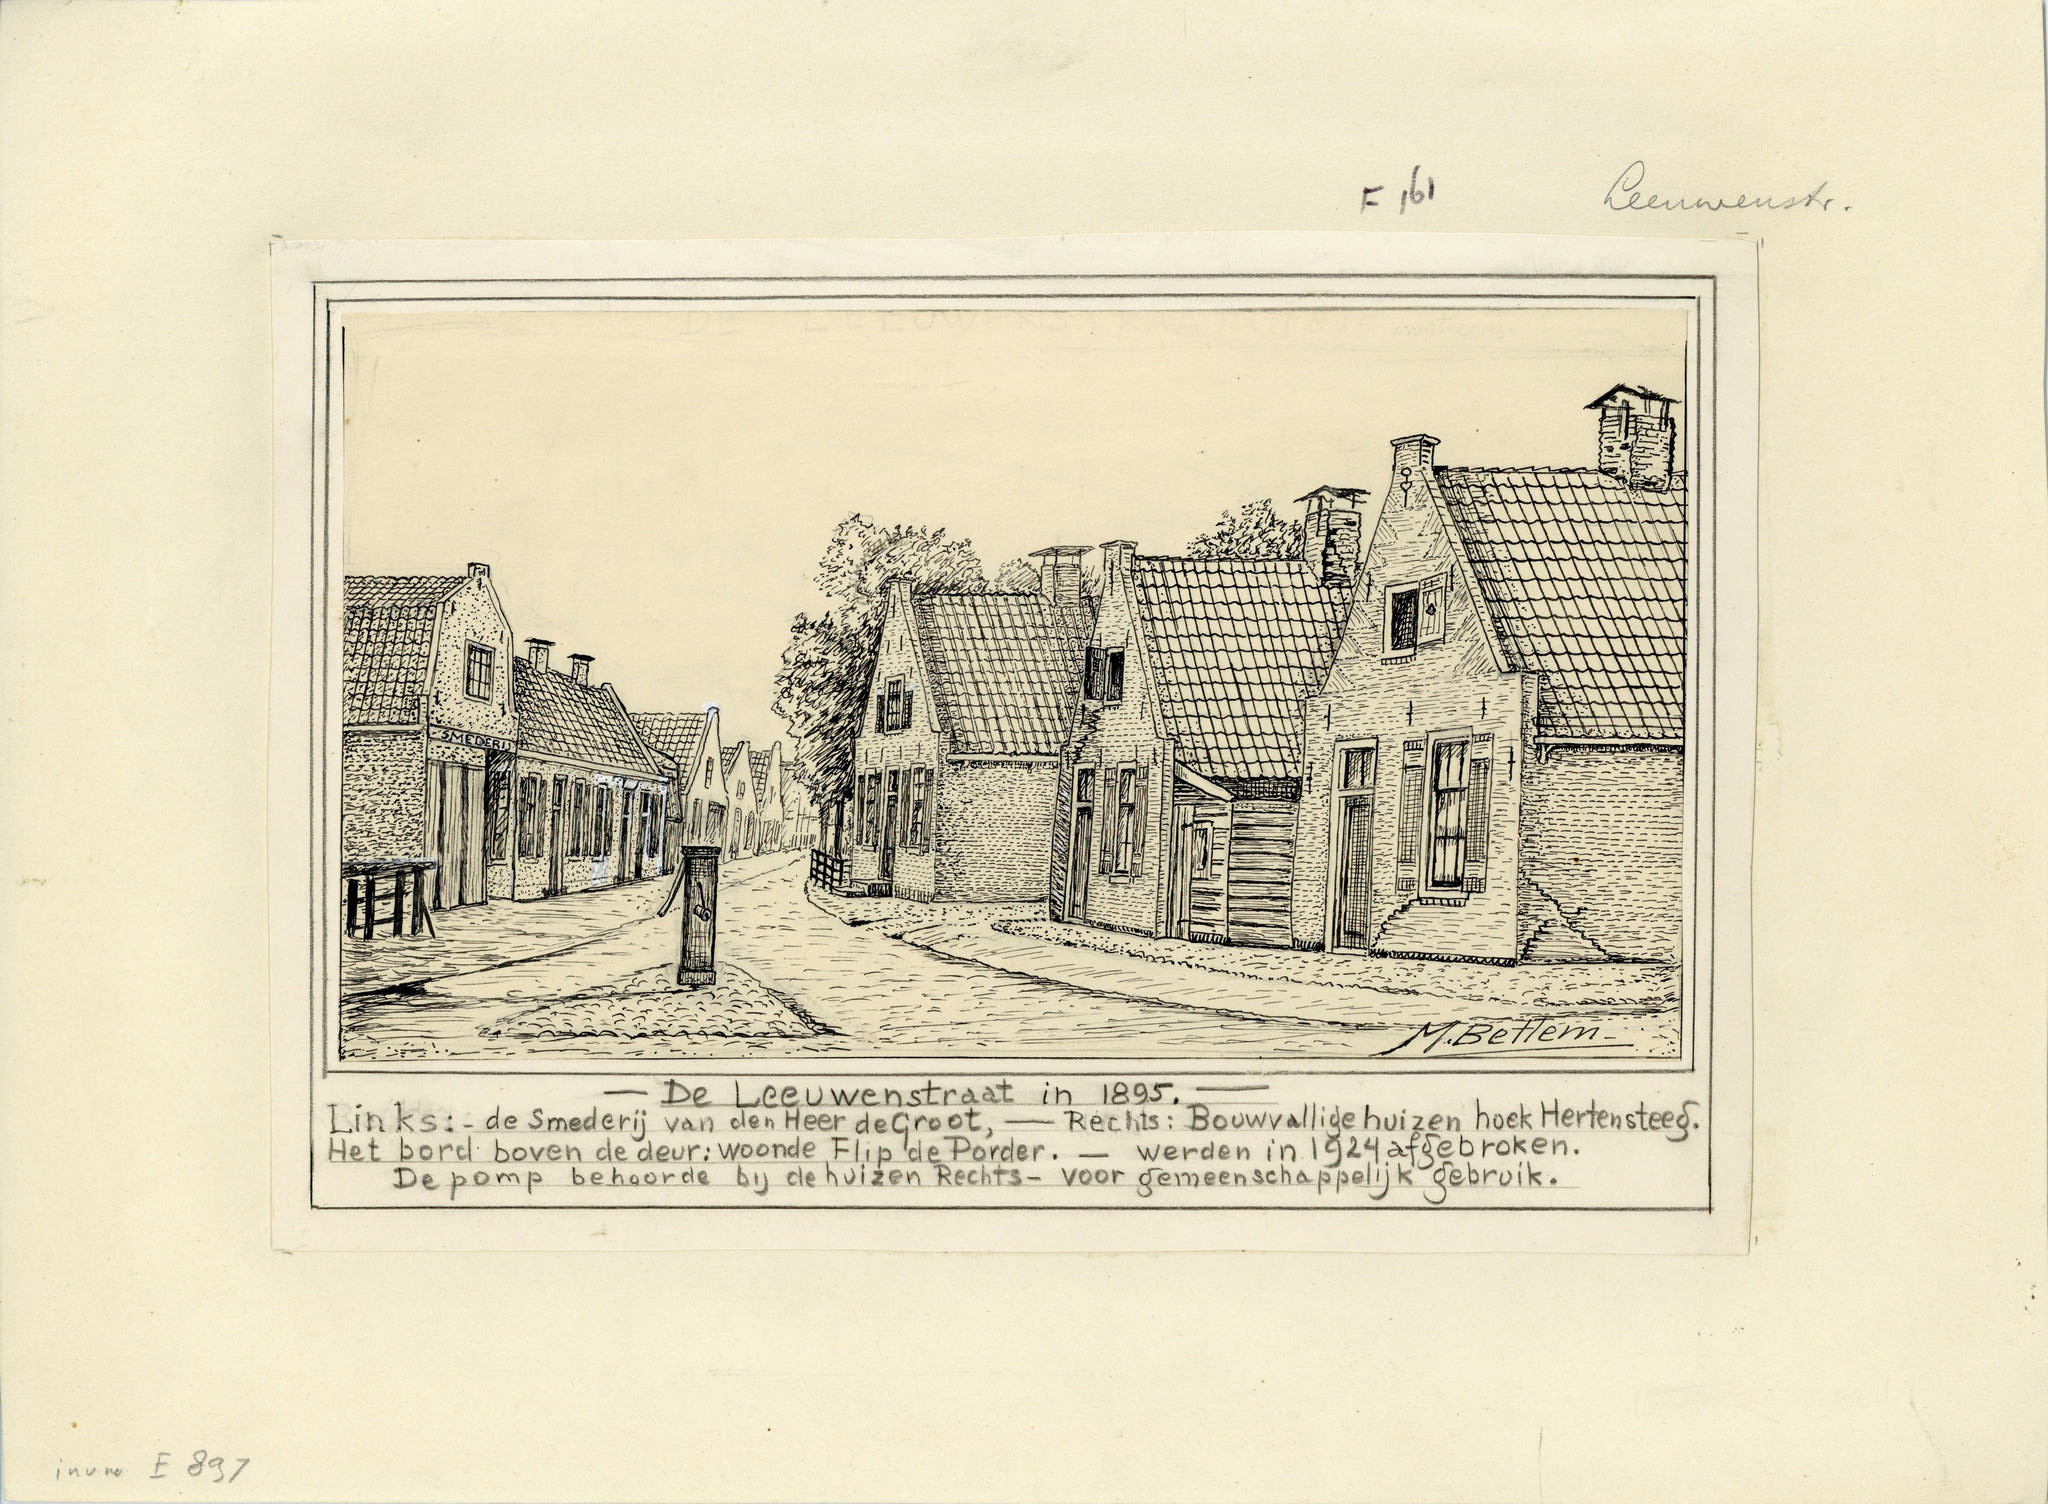 F 161
Leeuwenstr.
SMEDERIJ
M. Betlem
— De Leeuwenstraat in 1895. —
Links: - de Smederij van den Heer de Groot, — Rechts: Bouwvallige huizen hoek Hertensteeg.
Het bord boven de deur: woonde Flip de Porder. — werden in 1924 afgebroken.
De pomp behoorde bij de huizen Rechts - voor gemeenschappelijk gebruik.
E 897